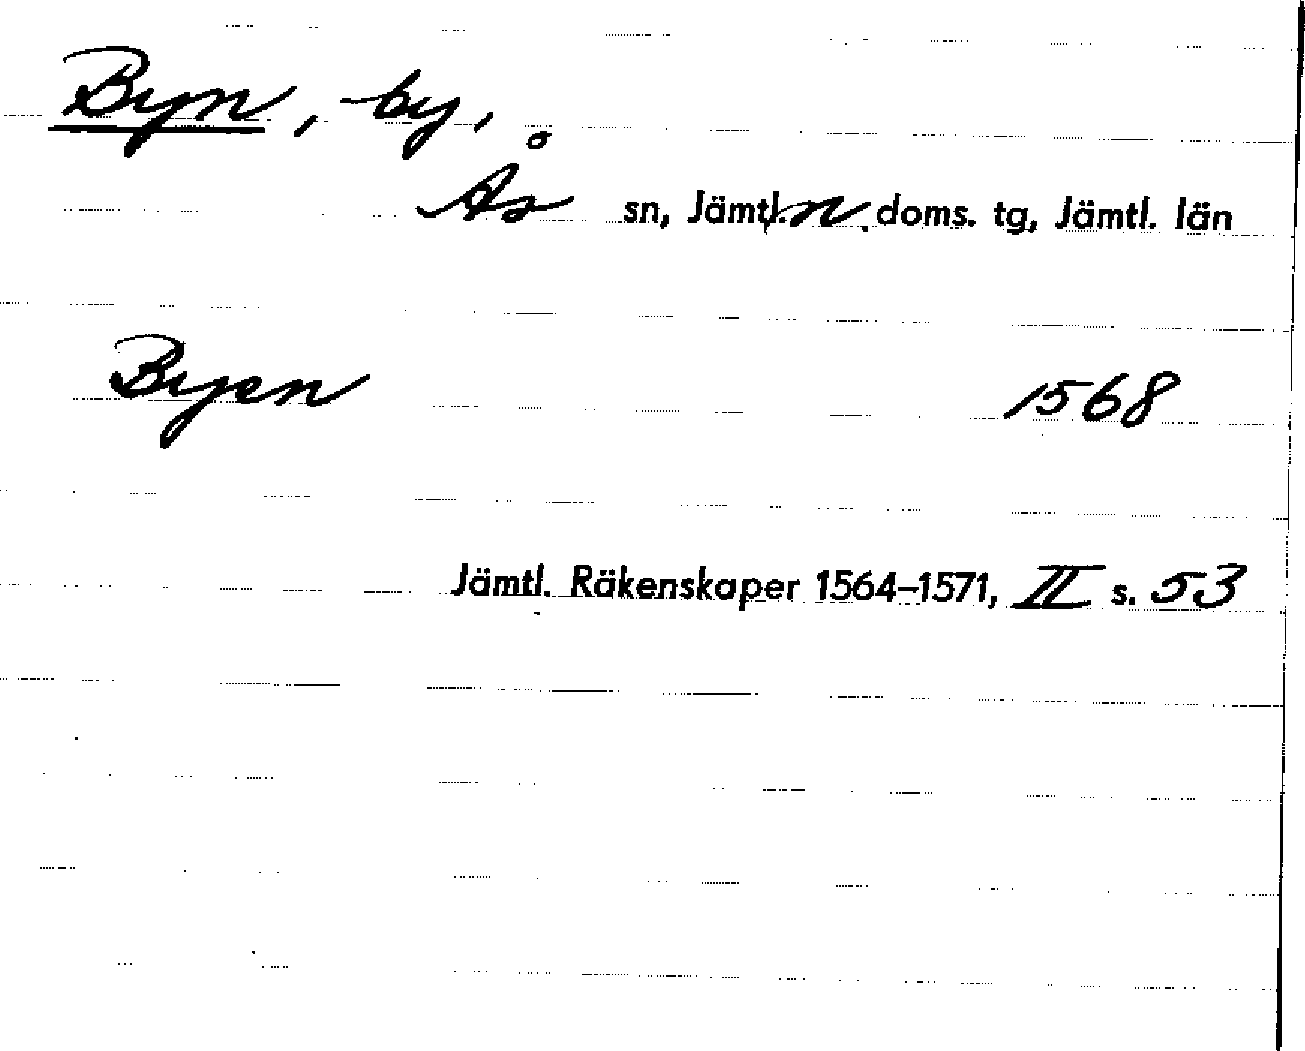 Byn, by,
Ås sn, Jämtl. n. doms. tg, Jämtl. län
Byen 1568
Jämtl. Räkenskaper 1564–1571, II s. 53